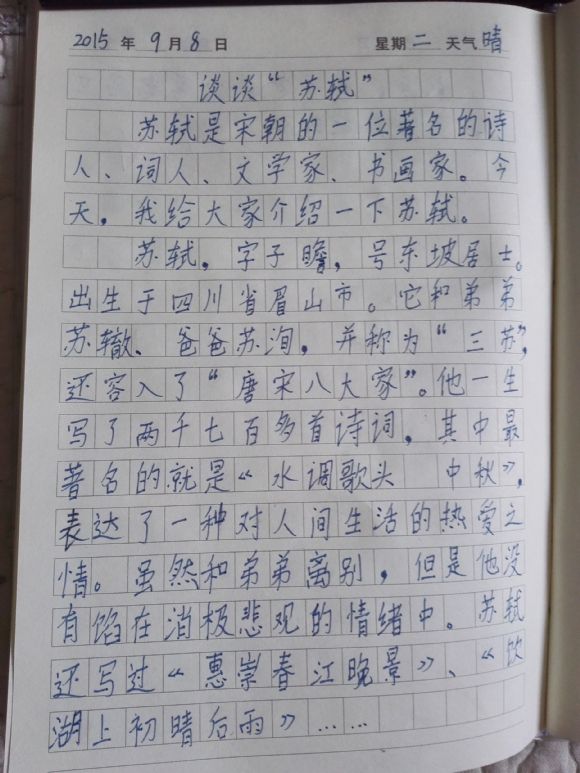 2015 年 9 月 8 日 星期 二 天气 晴
谈谈“苏轼”
苏轼是宋朝的一位著名的诗
人、词人、文学家、书画家。今
天，我给大家介绍一下苏轼。
苏轼，字子瞻，号东坡居士。
出生于四川省眉山市。它和弟弟
苏辙、爸爸苏洵，并称为“三苏”，
还容入了“唐宋八大家”。他一生
写了两千七百多首诗词，其中最
著名的就是《水调歌头 中秋》，
表达了一种对人间生活的热爱之
情。虽然和弟弟离别，但是他没
有馅在消极悲观的情绪中。苏轼
还写过《惠崇春江晚景》、《饮
湖上初晴后雨》……